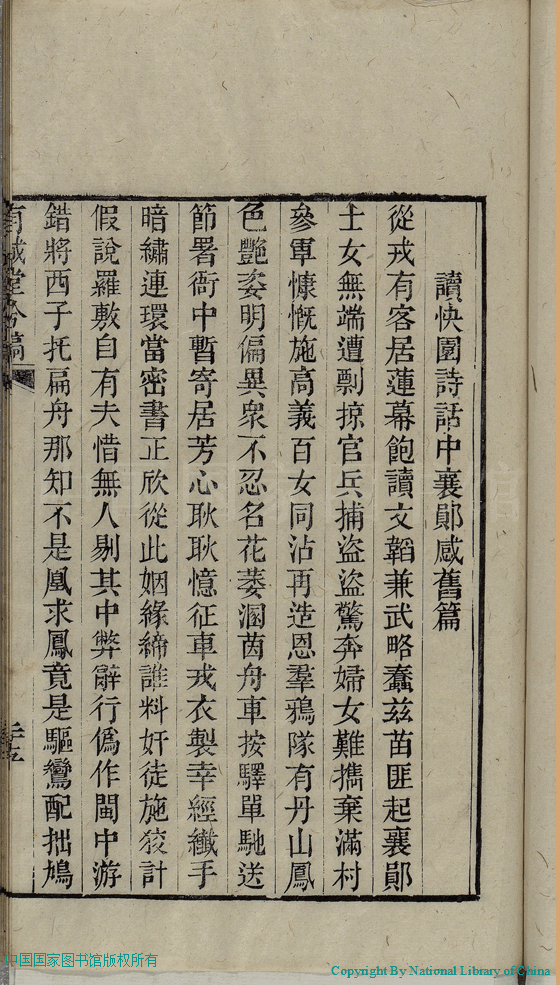 讀快園詩話中襄鄖感舊篇
從戎有客居蓮幕飽讀文韜兼武略蠢兹苗匪起襄鄖
士女無端遭剽掠官兵捕盜盜驚奔婦女難攜棄滿村
參軍慷慨施高義百女同沾再造恩羣鴉隊有丹山鳳
色艷姿明偏異衆不忍名花萎溷茵舟車按驛單馳送
節署衙中暫寄居芳心耿耿憶征車戎衣製幸經纖手
暗繡連環當密書正欣從此姻緣締誰料奸徒施狡計
假說羅敷自有夫惜無人剔其中弊辭行僞作閩中游
錯將西子托扁舟那知不是凰求鳳竟是驅鸞配拙鳩
有誠堂吟稿
三五
中国国家图书馆版权所有
Copyright By National Library of China